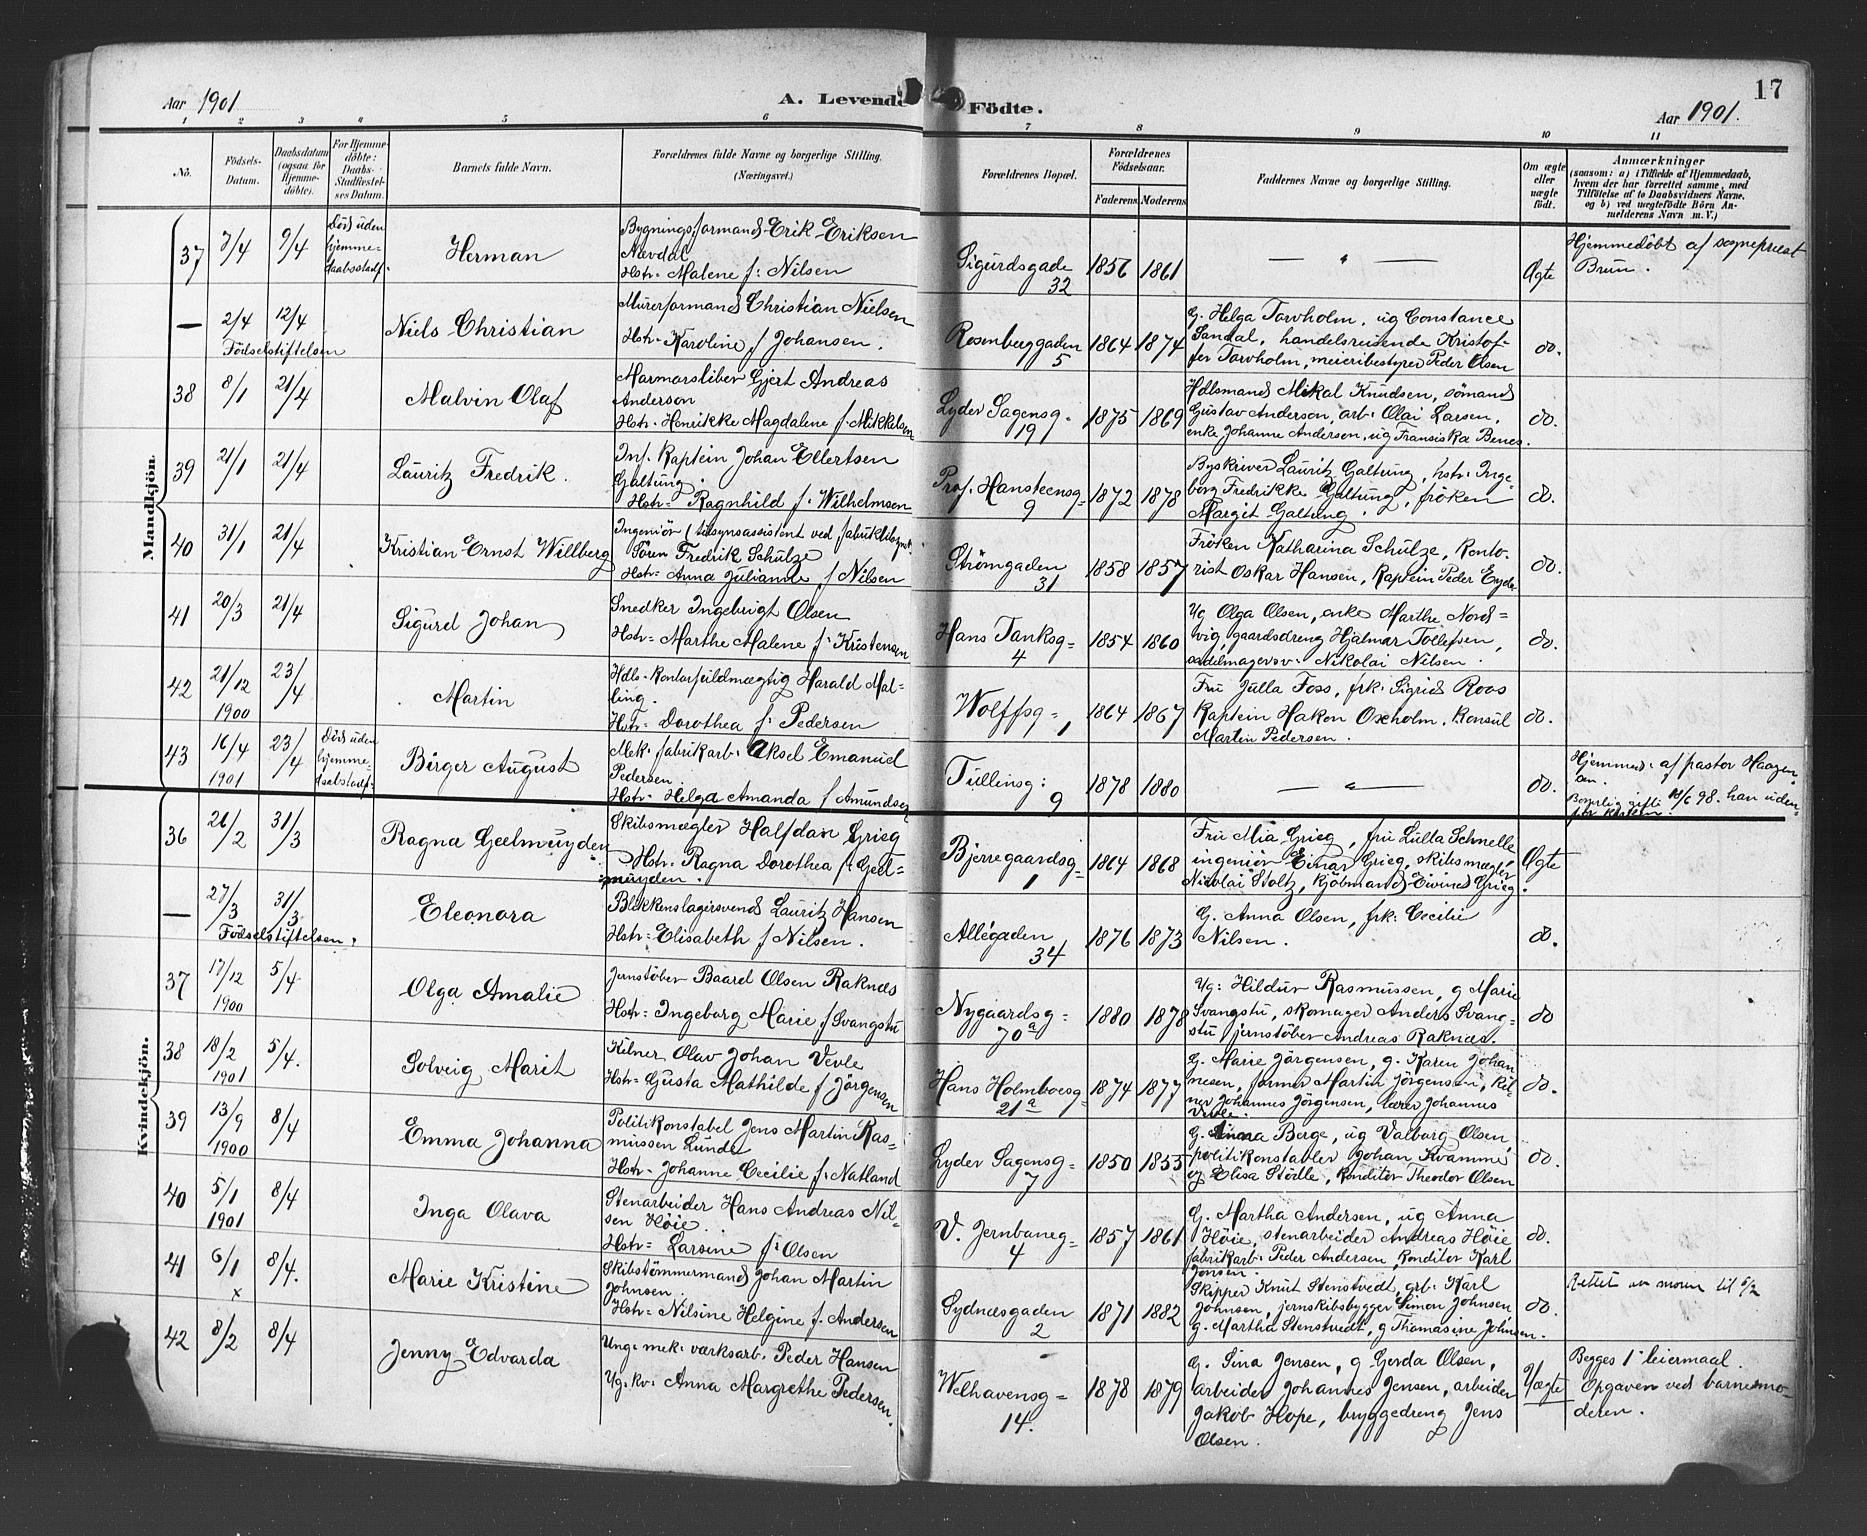 Aar 1901
A. Levende Födte.
17
Aar 1901.
1 2 3 4 5 6 7 8 9 10 11
No.
Födsels-Datum.
Daabsdatum (ogsaa for Hjemmedöbte).
For Hjemmedöbte: Daabs-Stadfæstelses Datum.
Barnets fulde Navn.
Forældrenes fulde Navne og borgerlige Stilling.
(Næringsvei.)
Forældrenes Bopæl.
Forældrenes Födselsaar.
Faderens Moderens
Faddernes Navne og borgerlige Stilling.
Om ægte eller uægte födt.
Anmærkninger
(saasom: a) i Tilfælde af Hjemmedaab,
hvem der har forrettet samme, med
Tilföielse af to Daabsvidners Navne,
og b) ved uægtefödte Börn Anmelderens Navn m. V.)
Mandkjön.
37 7/4 9/4 Död uden hjemmedaabsstadf. Herman
Bygningsformand Erik Eriksen
Nævdal
Hstr. Malene f: Nilsen
Sigurdsgade 32 1856 1861 — " — Ægte
Hjemmedöbt af sognepræst
Brun.
— 2/4 12/4 Födselstiftelsen Niels Christian
Murerformand Christian Nielsen
Hstr. Karoline f Johansen.
Rosenberggaden 5 1864 1874
G. Helga Torvholm, ug Constance
Sandal, handelsreisende Kristof-
fer Torvholm, meieribestyrer Peder Olsen
do.
38 8/1 21/4 Malvin Olaf
Marmorsliber Gjert Andreas
Anderson
Hstr. Henrikke Magdalene f. Mikkelsen
Lyder Sagensg. 19 1875 1869
Hdlsmand Mikal Knudsen, sömand
Gustav Anderson, arb. Olai Larsen,
enke Johanne Anderson, ug Fransiska Benes.
do.
39 21/1 21/4 Lauritz Fredrik.
Inf. Kaptein Johan Ellertsen
Galtung.
Hstr. Ragnhild f. Wilhelmsen
Prof. Hansteensg. 9 1872 1878
Byskriver Lauritz Galtung, hstr. Inge-
borg Fredrikke Galtung, fröken
Margit Galtung.
do.
40 31/1 21/4 Kristian Ernst Willberg
Ingeniör (tilsynsassistent ved
Sören Fredrik Schulze
Hstr. Anna Julianne f Nilsen
Strömgaden 31 1858 1857
Fröken Katharina Schulze, Konto-
rist Oskar Hansen, Kaptein Peder Eyde
do.
41 20/3 21/4 Sigurd Johan
Snedker Ingebrigt Olsen
Hstr. Marthe Malene f. Kristensen
Hans Tanksg. 4 1854 1860
Ug Olga Olsen, enke Marthe Nord-
vig, gaardsdreng Hjalmar Tollefsen,
sadelmagersv. Nikolai Nilsen.
do.
42 21/12 1900 23/4 Martin
Hdls. Kontorfuldmægtig Harald Mal-
ling.
Hstr. Dorothea f. Pedersen
Wolffsg. 1 1864 1867
Fru Julla Foss, frk. Sigrid Roos
Kaptein Hakon Oxholm, Konsul
Martin Pedersen.
do.
43 16/4 1901 23/4 Död uden hjemmedaabstadf. Birger August
Mek. fabrikarb. Aksel Emanuel
Pedersen
Hstr. Helga Amanda f Amundsen
Tullinsg: 9 1878 1880 — " — do.
Hjemmed. af pastor Haazen-
Borgerlig gift 18/6 98. han uden-
for kirken.
Kvindekjön.
36 26/2 31/3 Ragna Geelmuyden
Skibsmægler Halfdan Grieg
Hstr. Ragna Dorothea f. Geel-
muyden.
Bjerregaardsg. 1 1864 1868
Fru Mia Grieg, fru Lulla Schnelle
ingeniör Einar Grieg, skibsmægler
Nicolai Stoltz, Kjöbmand Eivind Grieg
Ægte.
— 27/3 31/3 Födselstiftelsen. Eleonora
Blikkenslagersvend Lauritz Hansen
Hstr. Elisabeth f Nilsen.
Allégaden 34 1876 1873
G. Anna Olsen, frk. Cecilie
Nilsen.
do.
37 17/12 1900 5/4 Olga Amalie
Jernstöber Baard Olsen Raknæs
Hstr. Ingeborg Marie f Svangstu
Nygaardsg. 70a 1880 1878
Ug. Hildur Rasmussen, g Marie
Svangstu, skomager Anders Svang-
stu, jernstöber Andreas Raknæs.
do
38 18/2 1901 5/4. Solveig Marit
Kelner Olav Johan Vevle
Hstr. Gusta Mathilde f Jörgensen
Hans Holmboesg. 21a 1874 1877
G. Marie Jörgensen, g. Karen Johan
nesen, former Martin Jörgensen, kel-
ner Johannes Jörgensen, lærer Johannes
Vevle.
do.
39 13/9 1900 8/4 Emma Johanna
Politikonstabel Jens Martin Ras-
mussen Lunde
Hstr. Johanne Cecilie f. Natland
Lyder Sagensg. 7 1850 1855
G. Anna Berge, ug Valborg Olsen,
politikonstabler Johan Kvamme
og Elisa Störlle, konditor Theodor Olsen
do.
40 5/1 1901 8/4 Inga Olava
Stenarbeider Hans Andreas Nil-
sen Höie.
Hstr. Larsine f. Olsen
V. Jernbaneg. 4 1857 1861
G. Martha Andersen, ug Anna
Höie, stenarbeider Andreas Höie
fabrikarb. Peder Andersen, konditor Karl
Jonsen.
do.
41 6/1 x 8/4. Marie Kristine
Skibstömmermand Johan Martin
Johnsen.
Hstr. Nilsine Helgine f. Andersen
Sydnæsgaden 2 1871 1882
Skipper Knut Stenstvedt, arb. Karl
Johnsen, jernskibsbygger Simon Johnsen
g. Martha Stenstvedt, g Thomasine Johnsen.
do.
Rettet av moren til 5/2
42 8/2 8/4 Jenny Edvarda
Ung. mek. værksarb. Peder Hansen
Ug. kv. Anna Margrethe Pedersen.
Welhavensg. 14. 1878 1879
G. Sina Jensen, g Gerda Olsen,
arbeider Johannes Jensen, arbeider
Jakob Hope, bryggedreng Jens
Olsen.
Uægte
Begges 1' leiermaal.
Opgaven ved barnemo-
deren.